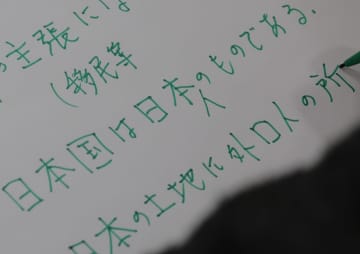 の主張には
(移民等
日本国は日本人のものである.
日本の土地に外口人の所